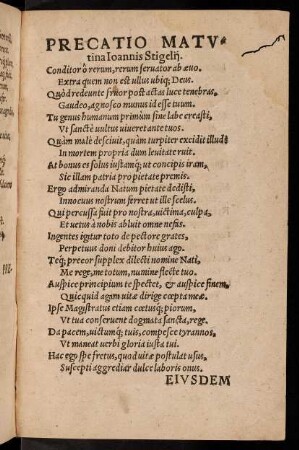 PRECATIO MATV-
tina Ioannis Stigelij.
Conditor ô rerum, rerum seruator ab æuo.
Extra quem non est ullus ubiq; Deus.
Quòd redeunte fruor post actas luce tenebras,
Gaudeo, agnosco munus id esse tuum.
Tu genus humanum primùm sine labe creasti,
Vt sanctè uultus uiueret ante tuos.
Quàm malè desciuit, quàm turpiter excidit illud?
In mortem propria dum leuitate ruit.
At bonus es solus iustamq; ut concipis iram,
Sic illam patria pro pietate premis.
Ergo admiranda Natum pietate dedisti,
Innocuus nostrum ferret ut ille scelus.
Qui percussa fuit pro nostra, uictima, culpa,
Et uetus à nobis abluit omne nefas.
Ingentes igitur toto de pectore grates,
Perpetuus doni debitor huius ago.
Teq; precor supplex dilecti nomine Nati,
Me rege, me totum, numine flecte tuo.
Auspice principium te spectet, & auspice finem,
Quicquid agim uitæ dirige cœpta meæ.
Ipse Magistratus etiam cœtusq; piorum,
Vt tua conseruent dogmata sancta, rege.
Da pacem, uictumq; tuis, compesce tyrannos,
Vt maneat uerbi gloria iusta tui.
Hac ego spe fretus, quod uitæ postulat usus,
Suscepti aggrediar dulce laboris onus.
EIVSDEM